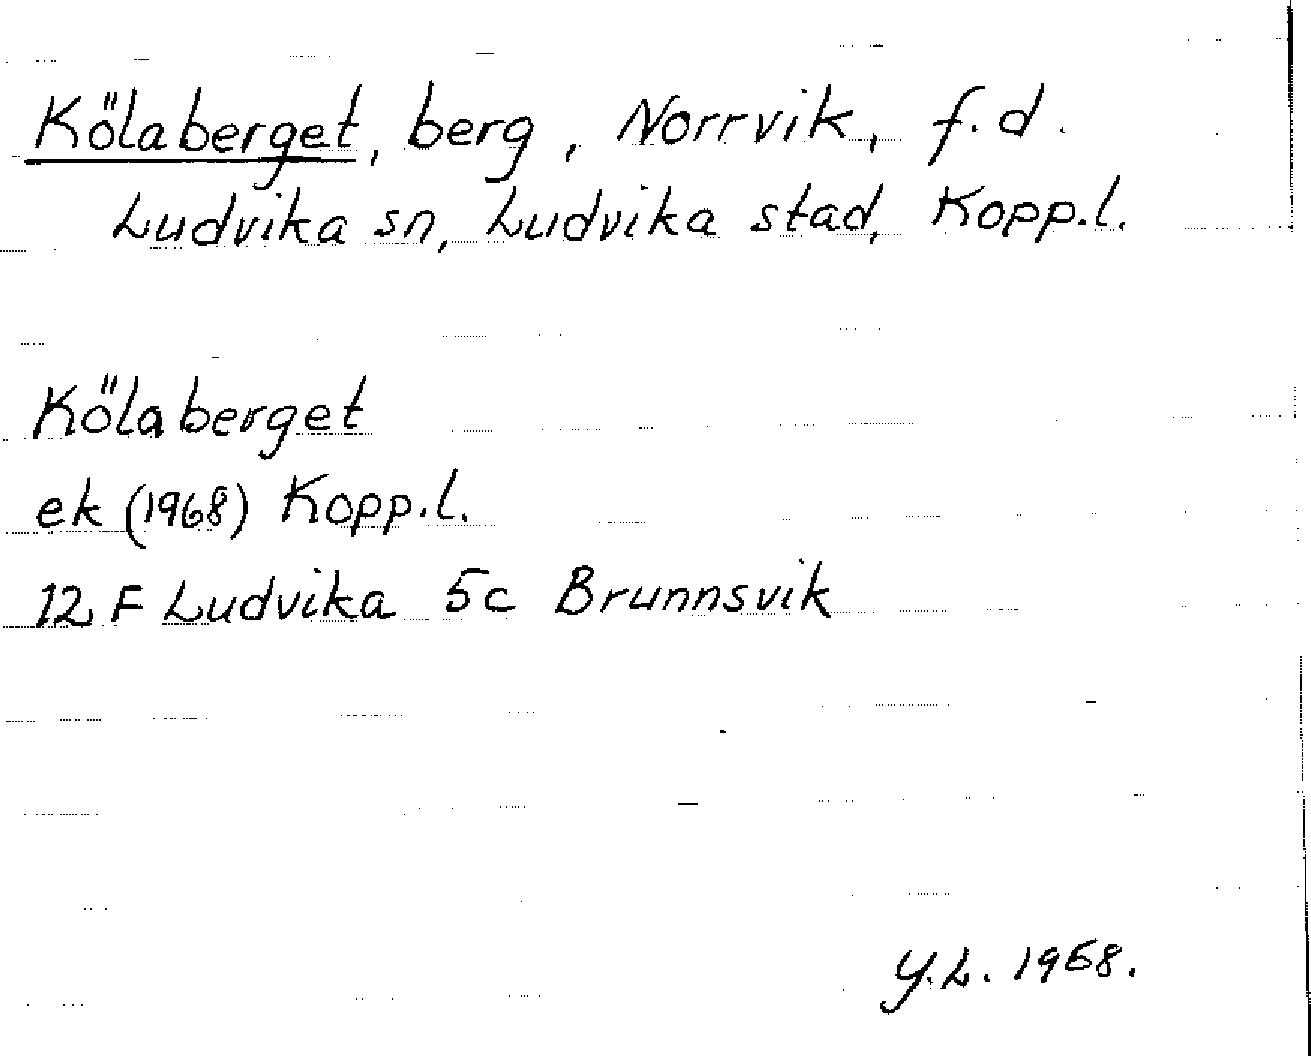 Kölaberget, berg, Norrvik, f.d.
Ludvika sn, Ludvika stad, Kopp.l.
Kölaberget
ek (1968) Kopp.l.
12 F Ludvika 5c Brunnsvik
Y.L. 1968.